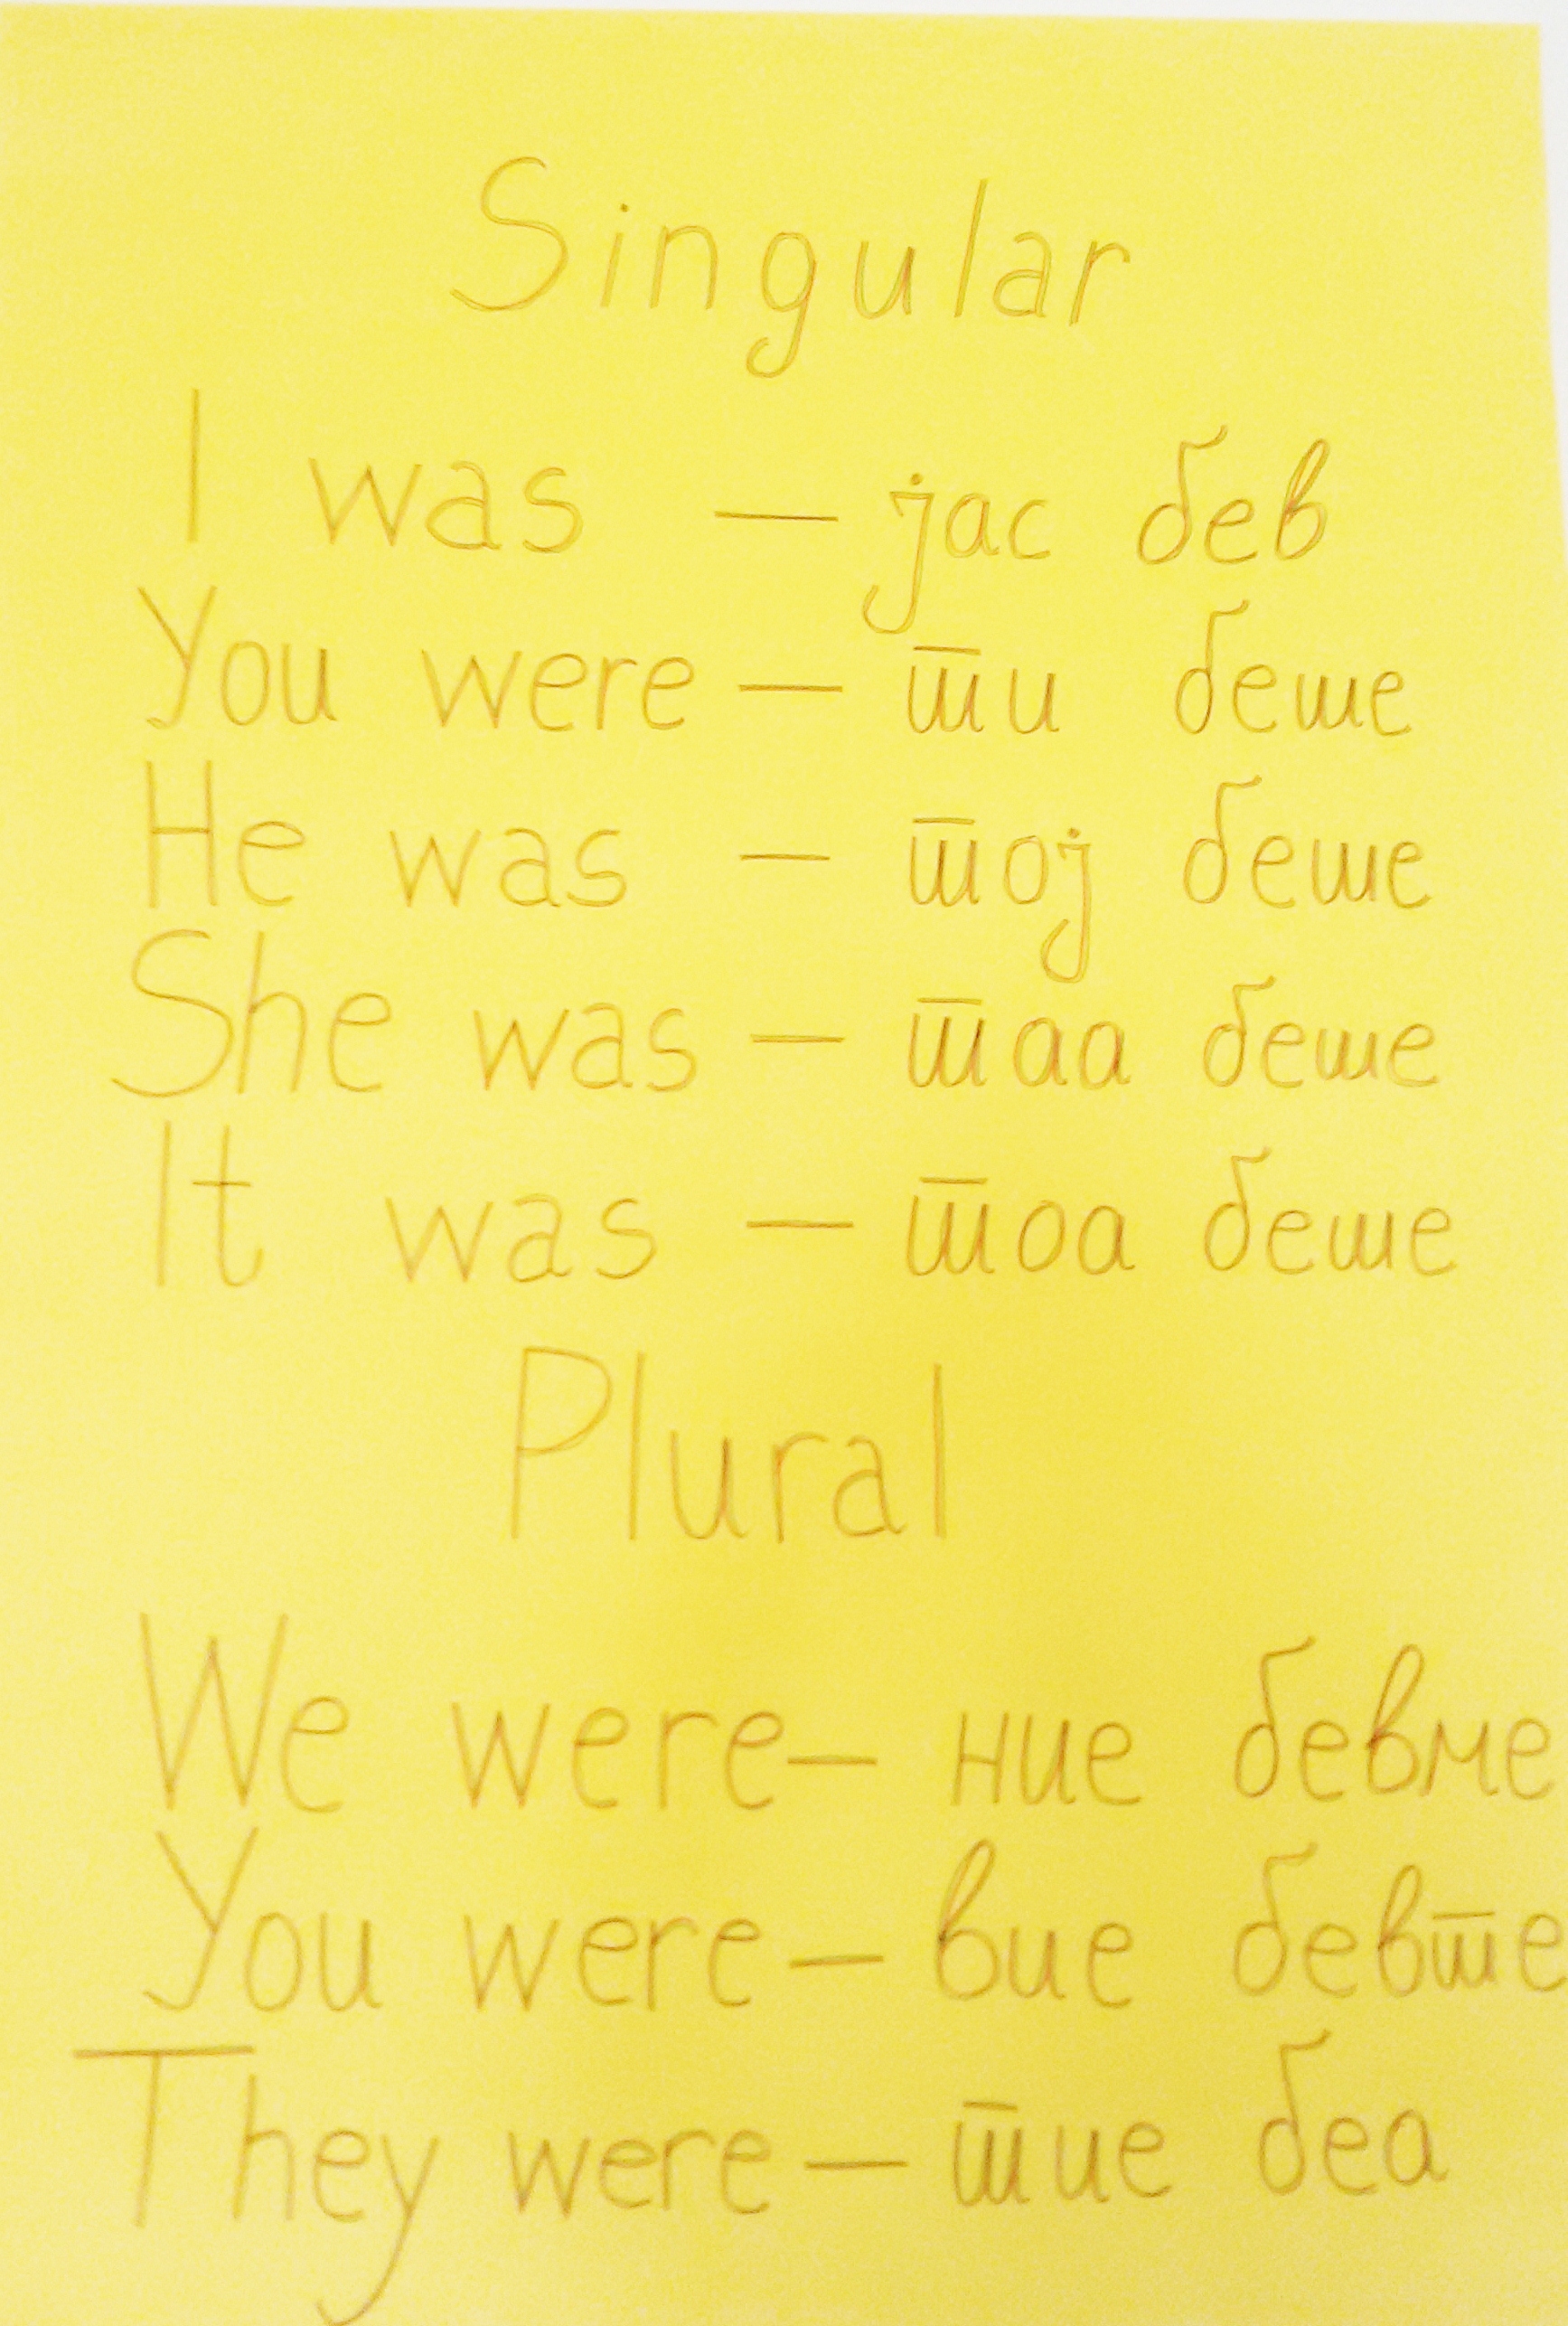 Singular
I was — јас бев
You were — ти беше
He was — тој беше
She was — таа беше
It was — тоа беше
Plural
We were — ние бевме
You were — вие бевте
They were — тие беа